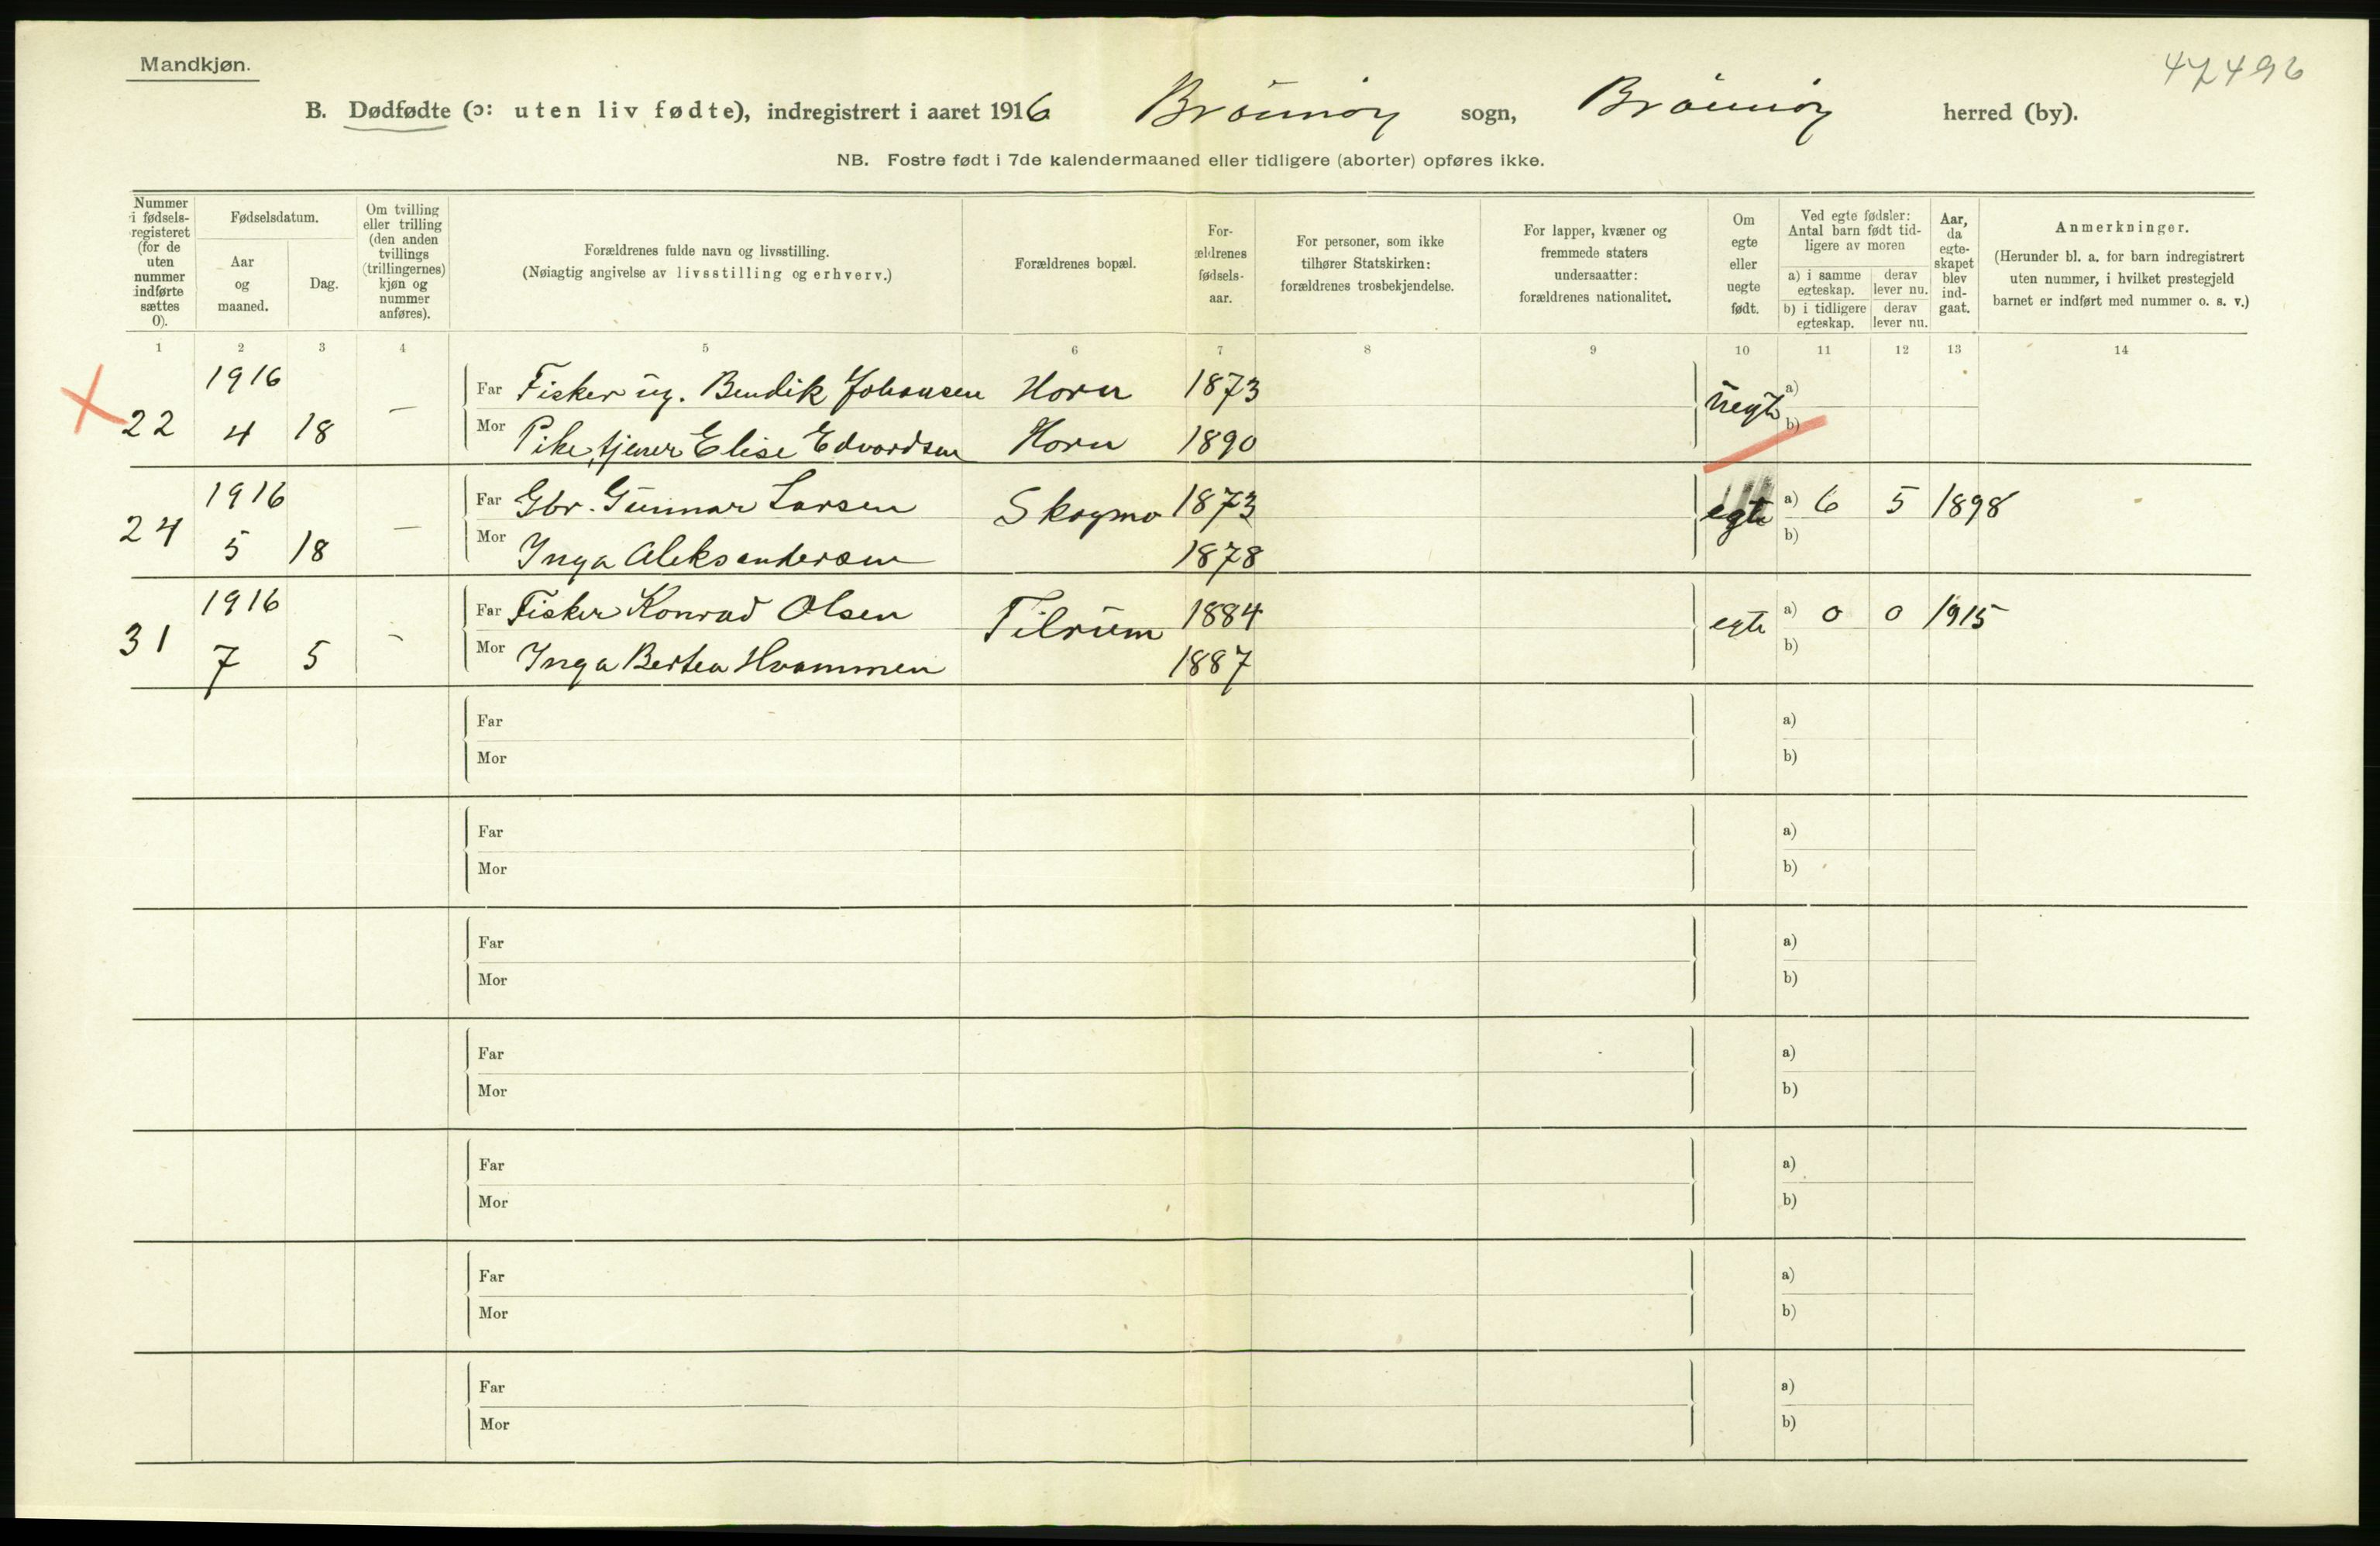 Mandkjøn.
47496
B. Dødfødte (ɔ: uten liv fødte), indregistrert i aaret 1916 Brönnöy sogn, Brönnöy herred (by).
NB. Fostre født i 7de kalendermaaned eller tidligere (aborter) opføres ikke.
Nummer i fødsels-registeret (for de uten nummer indførte sættes 0).
Fødselsdatum.
Aar og maaned.
Dag.
Om tvilling eller trilling (den anden tvillings (trillingernes) kjøn og nummer anføres).
Forældrenes fulde navn og livsstilling.
(Nøiagtig angivelse av livsstilling og erhverv.)
Forældrenes bopæl.
For-ældrenes fødsels-aar.
For personer, som ikke tilhører Statskirken: forældrenes trosbekjendelse.
For lapper, kvæner og fremmede staters undersaatter: forældrenes nationalitet.
Om egte eller uegte født.
Ved egte fødsler: Antal barn født tid-ligere av moren
a) i samme egteskap. derav lever nu.
b) i tidligere egteskap. derav lever nu.
Aar, da egte-skapet blev ind-gaat.
Anmerkninger.
(Herunder bl. a. for barn indregistrert uten nummer, i hvilket prestegjeld barnet er indført med nummer o. s. v.)
1 2 3 4 5 6 7 8 9 10 11 12 13 14
1916 Far Fisker ug. Bendik Johansen Horn 1873 uegte a)
22 4 18 – Mor Pike, tjener Elise Edvardsen Horn 1890 b)
1916 Far Gbr. Gunnar Larsen Skogmo 1873 egte a) 6 5 1898
24 5 18 – Mor Inga Aleksandersen 1878 b)
1916 Far Fisker Konrad Olsen Tilrum 1884 egte a) 0 0 1915
31 7 5 – Mor Inga Bertea Hvammen 1887 b)
Far a)
Mor b)
Far a)
Mor b)
Far a)
Mor b)
Far a)
Mor b)
Far a)
Mor b)
Far a)
Mor b)
Far a)
Mor b)